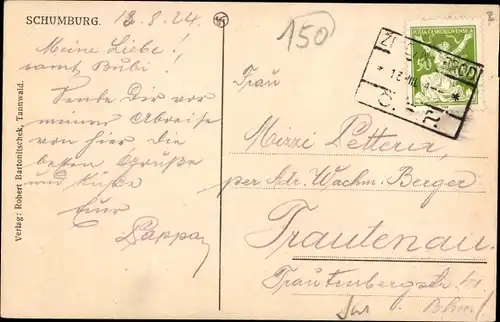 SCHUMBURG.
13.8.24.
150
Meine Liebe!
samt Bubi!
Sende Dir vor
meiner Abreise
von hier die
besten Grüße
und Küße
Eur
Pappa
Verlag: Robert Bartonitschek, Tannwald.
POŠTA ČESKOSLOVENSKÁ
50
Frau
Mizzi Petterix
per Adr. Wachm. Berger
Trautenau
Trautenbergstr.
Böhm!